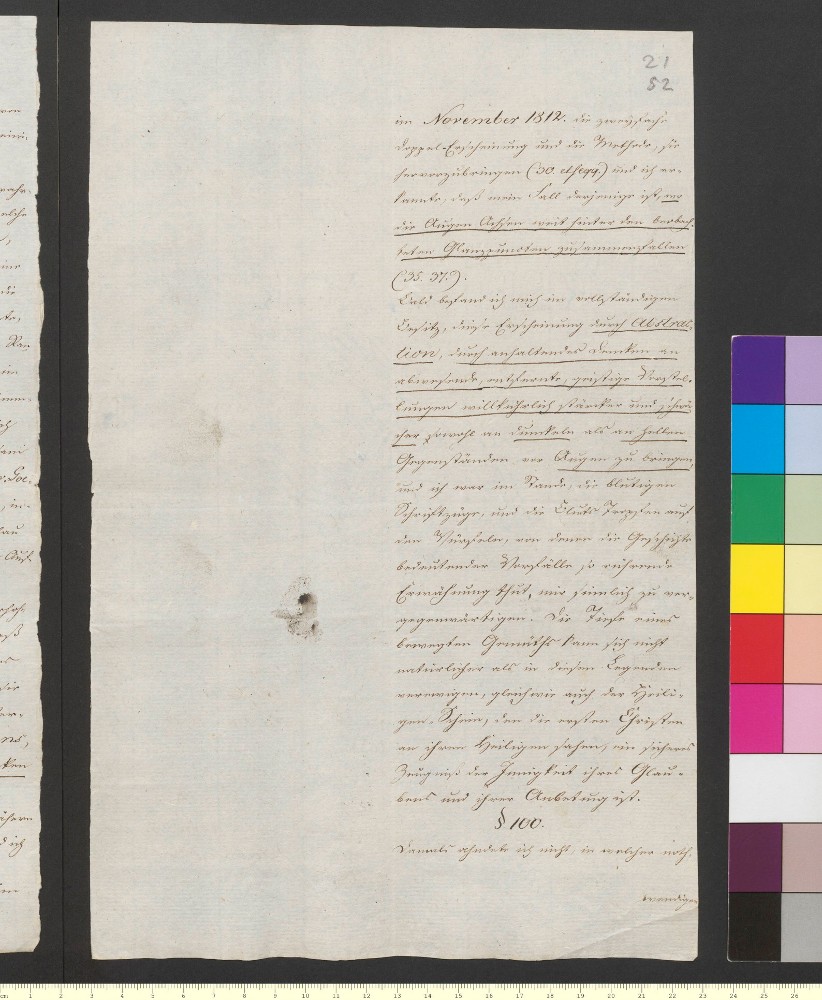 21
52
im November 1812. die zweyfache
Doppel-Erscheinung und die Methode, sie
hervorzubringen (30. et seqq.) und ich er-
kannte, daß mein Fall derjenige ist, wo
die Augen Achsen weit hinter den beobach-
teten Glanzpuncten zusammenfallen
(35. 37.).
Bald befand ich mich im vollständigen
Besitz, diese Erscheinung durch Abstrac-
tion, durch anhaltendes Denken an
abwesende, entfernte, geistige Vorstel-
lungen willkührlich stärker und schwä-
cher sowohl an dunkeln als an hellen
Gegenständen vor Augen zu bringen,
und ich war im Stande, die blutigen
Schriftzüge, und die Bluts Tropfen auf
den Würfeln, von denen die Geschichte
bedeutender Vorfälle so rührende
Erwähnung thut, mir sinnlich zu ver-
gegenwärtigen. Die Tiefe eines
bewegten Gemüths kann sich nicht
natürlicher als in diesen Legenden
verewigen, gleichwie auch der Heili-
gen-Schein, den die ersten Christen
an ihren Heiligen sahen, ein sicheres
Zeugniß der Innigkeit ihres Glau-
bens und ihrer Anbetung ist.
§ 100.
Damals ahndete ich nicht, in welcher noth-
wendigen